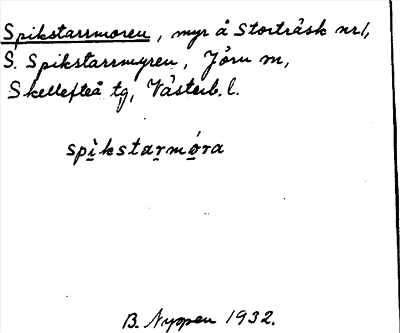 Spikstarrmoren, myr å Storträsk nr 1,
S. Spikstarrmyren, Jörn m,
Skellefteå tg, Västerb. l.
spìkstarmóra
B. Nyppen 1932.